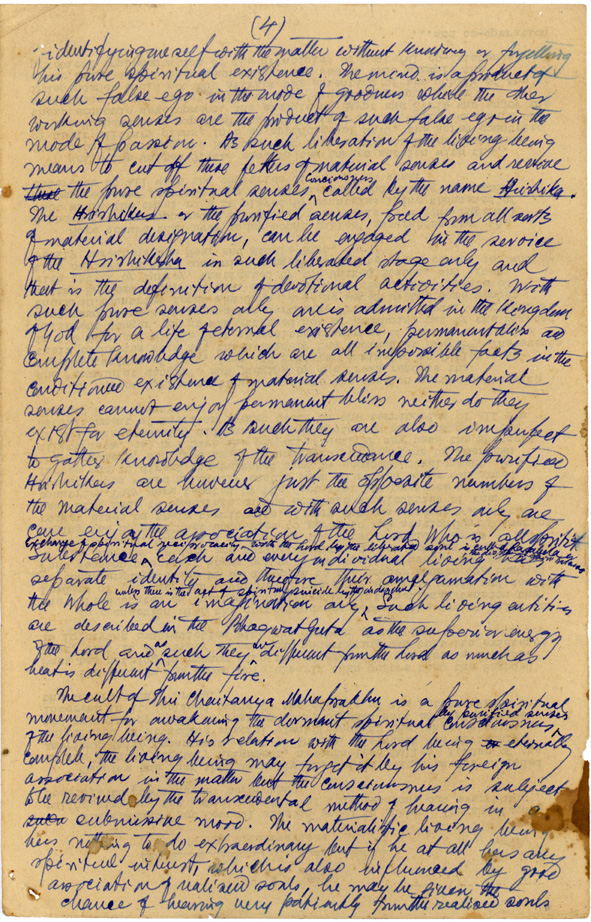 (4)
identifying oneself with the matter without knowing or forgetting
his pure spiritual existence. The mind is a product of
such false ego in the mode of goodness where the other
working senses are the product of such false ego in the
mode of passion. As such liberation of the living being
means to cut off these fetters of material senses and revive
the pure spiritual senses consciousness called by the name Hrishika.
The Hrishikas or the purified senses, freed from all sorts
of material designation, can be engaged in the service
of the Hrishikesha in such liberated stage only and
that is the definition of devotional activities. With
such pure senses only one is admitted in the Kingdom
of God for a life of eternal existence, permanent bliss and
complete knowledge which are all impossible facts in the
conditioned existence of material senses. The material
senses cannot enjoy permanent bliss neither do they
exist for eternity. As such they are also imperfect
to gather knowledge of the Transcendance. The purified
Hrishikas are however just the opposite numbers of
the material senses and with such senses only one
can enjoy the association of the Lord Who is all spirit
Exchange of spiritual reciprocacy with the Lord by the liberated soul is
substance, each and every individual living being
separate identity and therefore their amalgamation with
unless there is the act of spiritual suicide
the whole is an imagination only, such living entities
are described in the Bhagwat Gita as the superior energy
of the Lord and as such they are different from the Lord as much as
heat is different from the fire.
The cult of Shri Chaitanya Mahaprabhu is a pure spiritual
by purified senses
movement for awakening the dormant spiritual consciousness
of the living being. His relation with the Lord being eternally
complete, the living being may forget it by his foreign
association in the matter but the consciousness is subject
to be revived by the transcendental method of hearing in a
submissive mood. The materialistic living being
has nothing to do extraordinary but if he at all has any
spiritual interest, which is also influenced by good
association of realised souls, he may be given the
chance of hearing very patiently from the realised souls